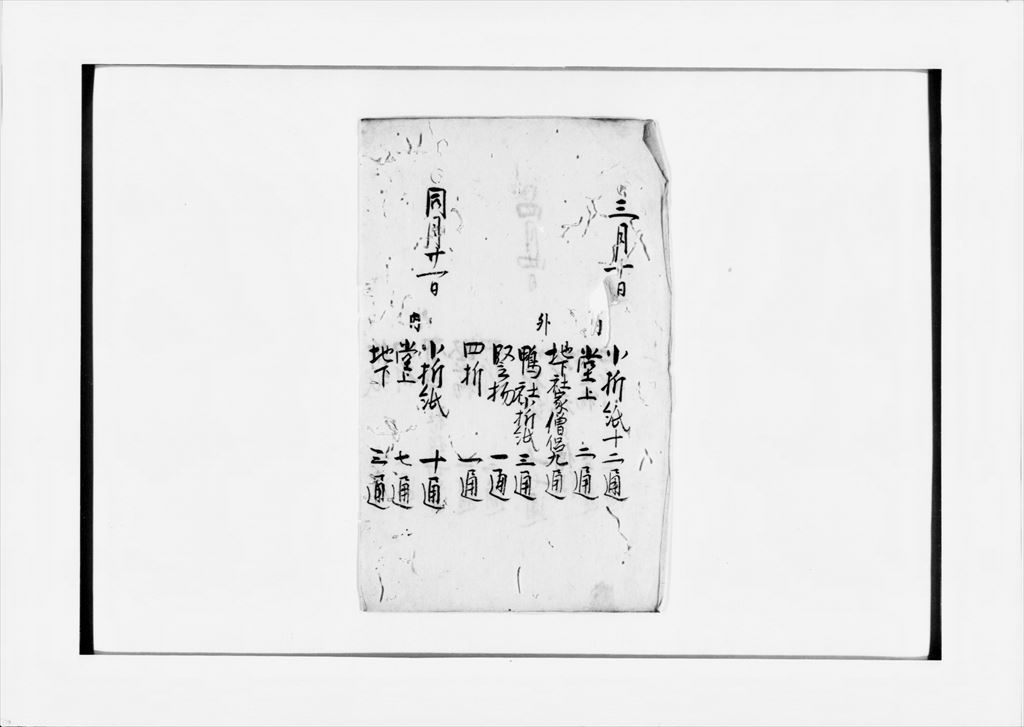 三月十日
小折紙十二通
内
堂上 二通
地下社家僧侶九通
外
鴨社折紙 三通
竪折 一通
四折 一通
同月廿一日
小折紙 十通
内
堂上 七通
地下 三通